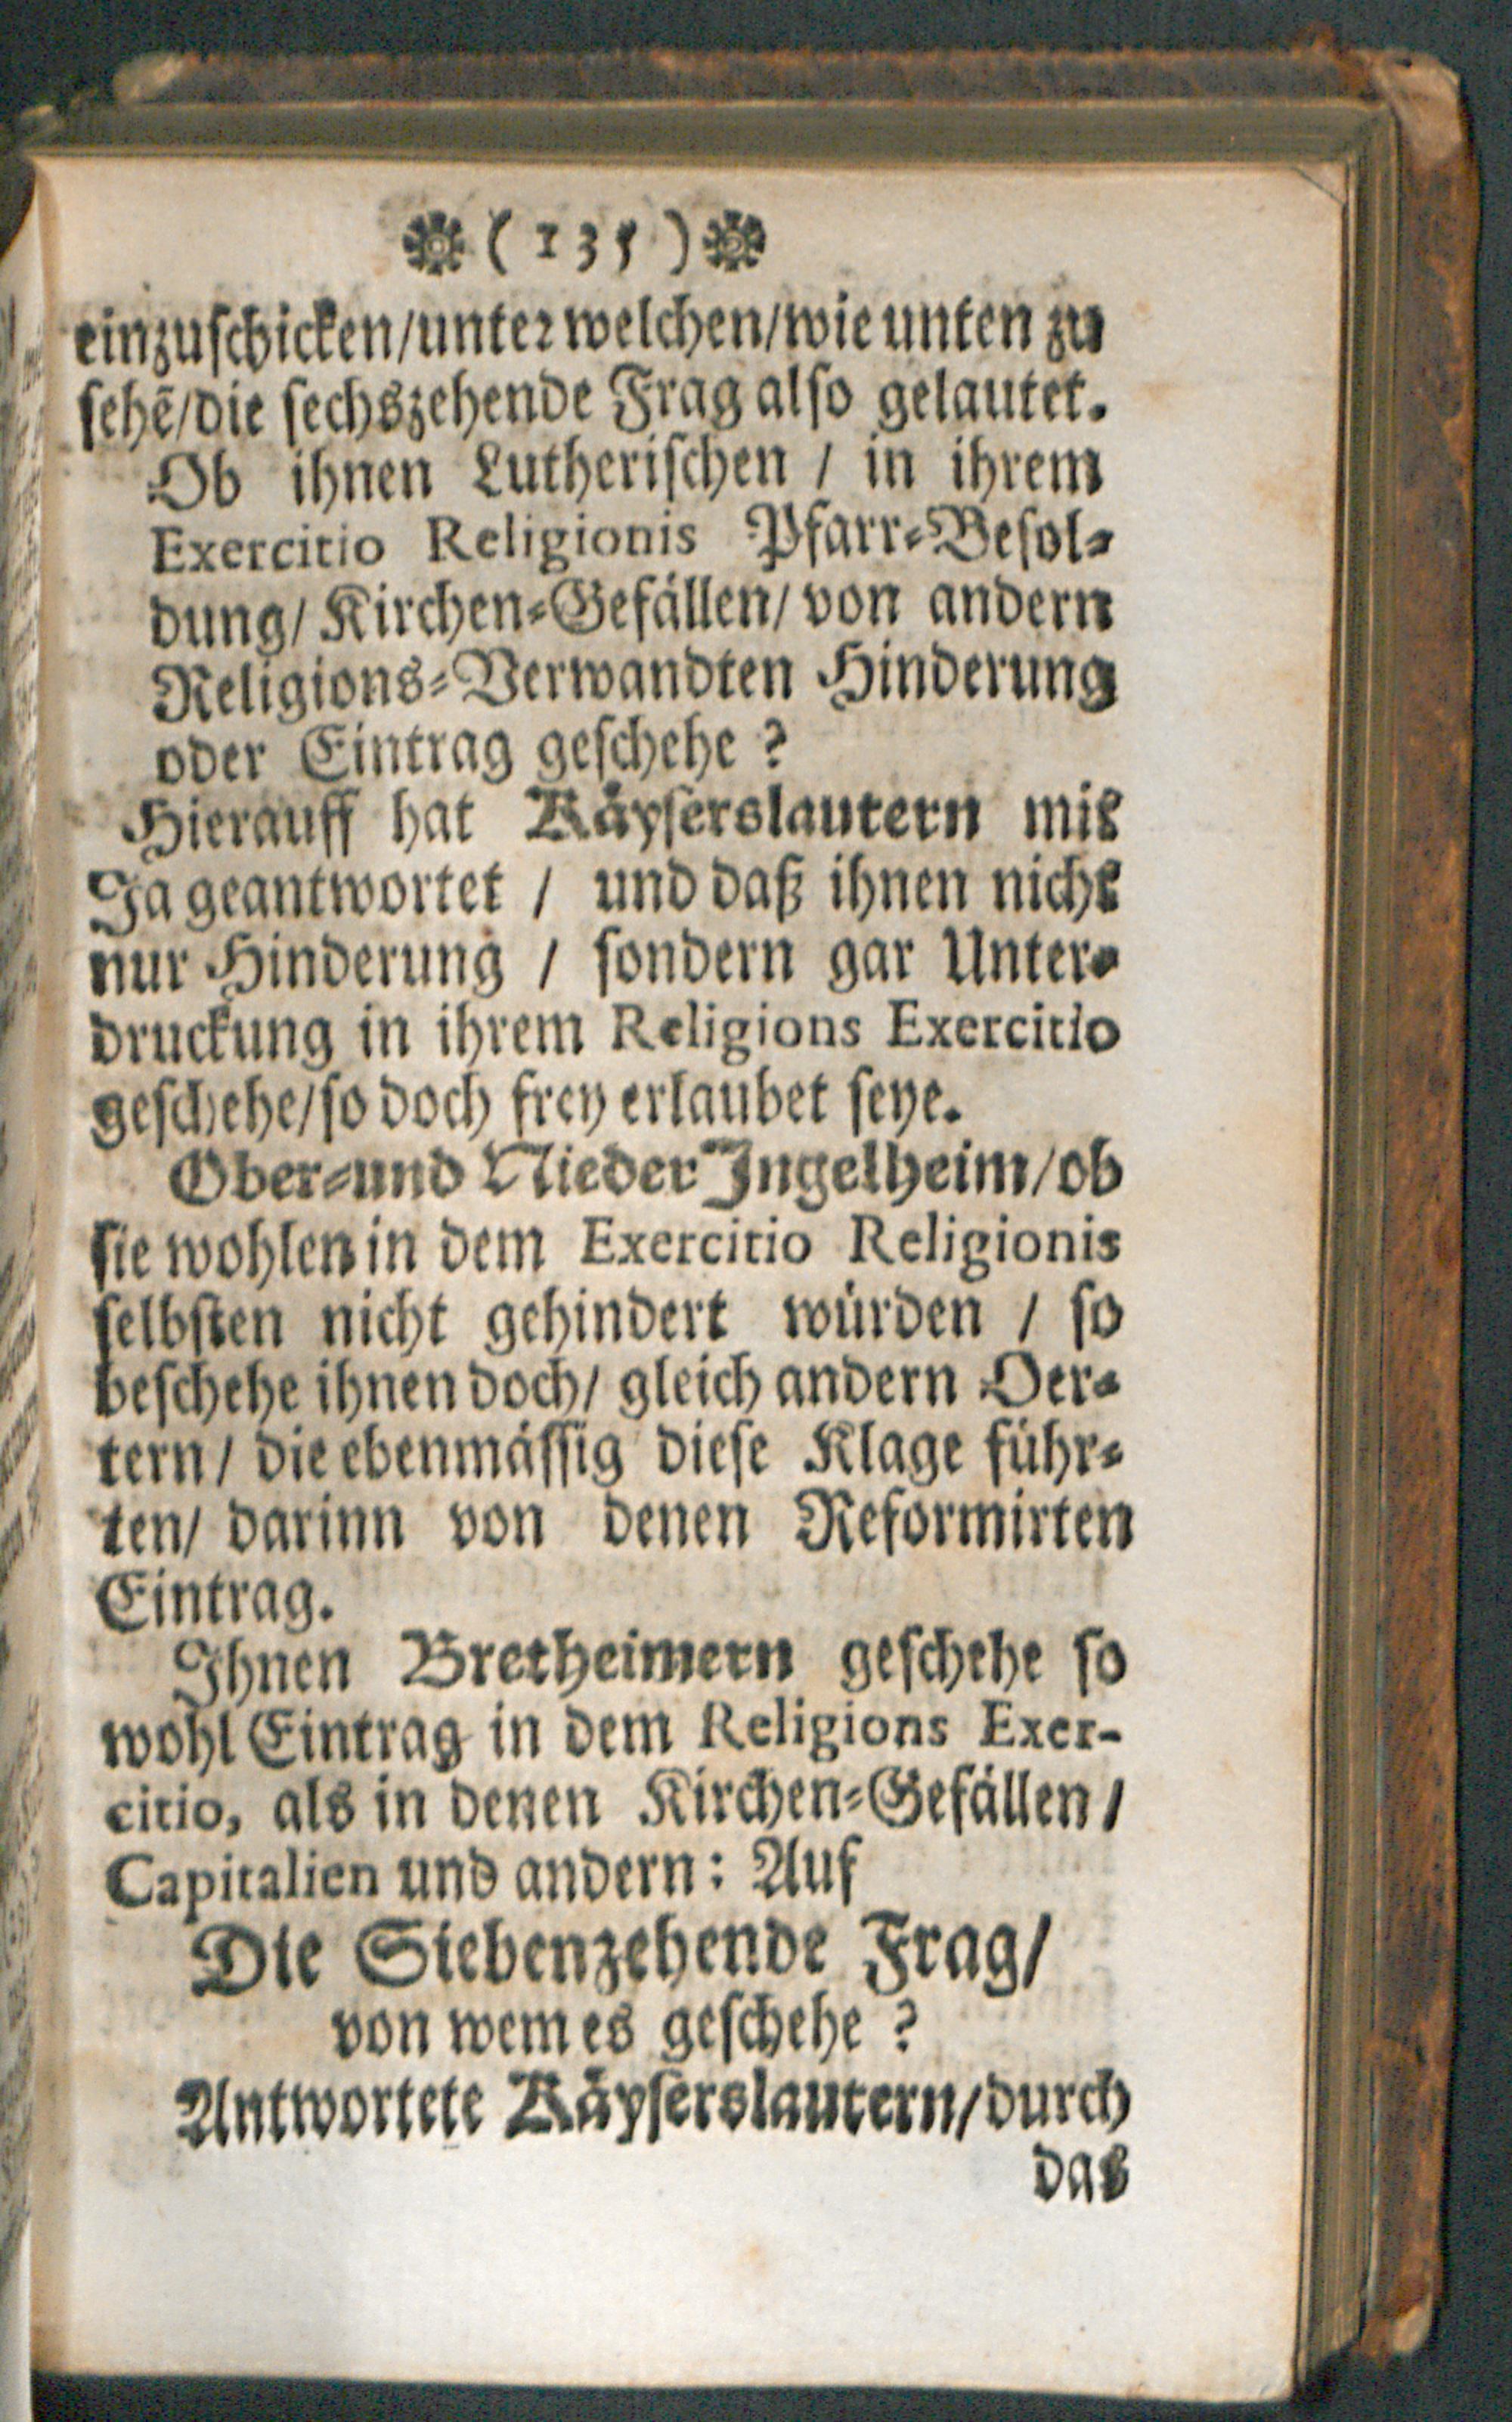 (135)
einzuschicken/unter welchen/wie unten zu
sehē/die sechszehende Frag also gelautet.
Ob ihnen Lutherischen / in ihrem
Exercitio Religionis Pfarr-Besol-
dung/ Kirchen-Gefällen/ von andern
Religions-Verwandten Hinderung
oder Eintrag geschehe ?
Hierauff hat Käyserslautern mit
Ja geantwortet / und daß ihnen nicht
nur Hinderung / sondern gar Unter-
druckung in ihrem Religions Exercitio
geschehe/so doch frey erlaubet seye.
Ober-und Nieder Ingelheim/ob
sie wohlen in dem Exercitio Religionis
selbsten nicht gehindert würden / so
beschehe ihnen doch/ gleich andern Oer-
tern/ die ebenmässig diese Klage führ-
ten/ darinn von denen Reformirten
Eintrag.
Ihnen Bretheimern geschehe so
wohl Eintrag in dem Religions Exer-
citio, als in denen Kirchen-Gefällen/
Capitalien und andern: Auf
Die Siebenzehende Frag/
von wem es geschehe ?
Antwortete Käyserslautern/durch
das